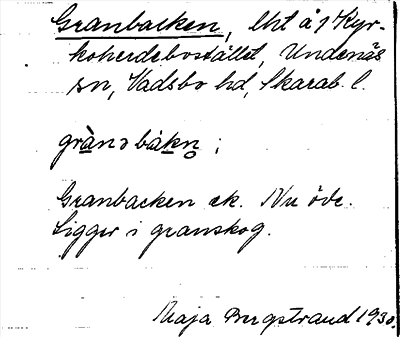 Granbacken, lht å 1 Kyr-
koherdebostället, Undenäs
sn, Vadsbo hd, Skarab. l.
grànɔbákn̥ ;
Granbacken ek. Nu öde.
Ligger i granskog.
Maja Bergstrand 1930.